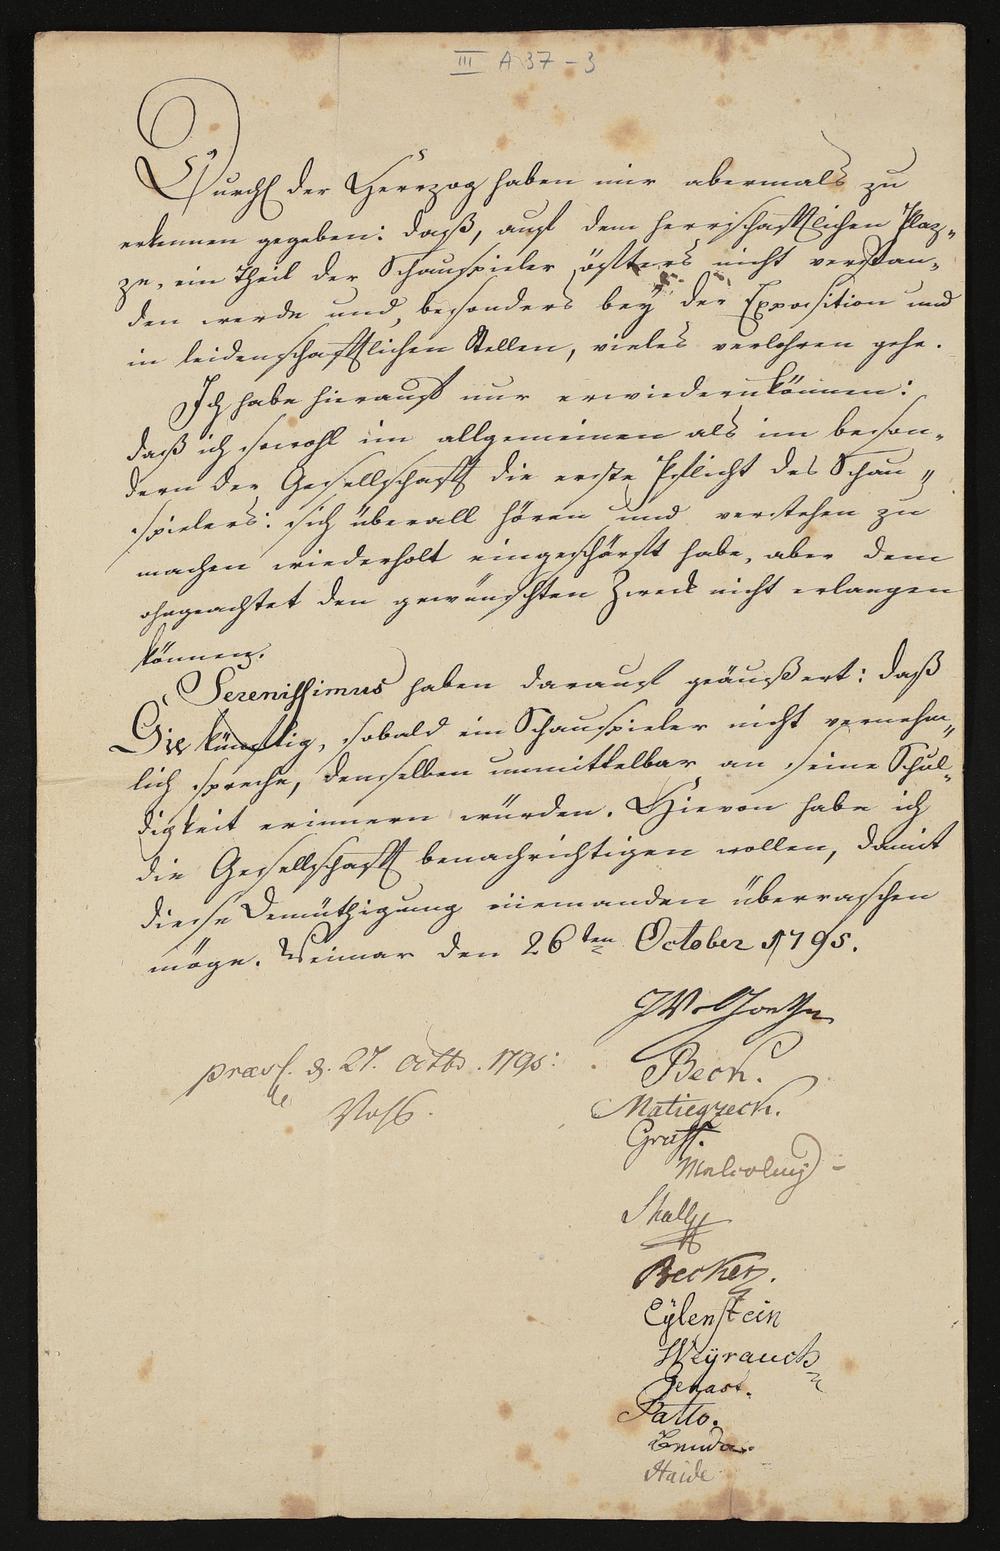 III A 37 - 3
Durchl der Herrzog haben mir abermals zu
erkennen gegeben: daß, auf dem herrschafftlichen Plaz„
ze, ein Theil der Schauspieler öffters nicht verstan„
den werde und, besonders bey der Exposition und
in leidenschafftlichen Stellen, vieles verlohren gehe.
Ich habe hierauf nur erwiedern können:
daß ich sowohl im allgemeinen als im beson„
dern der Gesellschafft die erste Pflicht des Schau„
spielers: sich überall hören und verstehen zu
machen wiederholt eingeschärft habe, aber dem
ohngeachtet den gewünschten Zweck nicht erlangen
können.
Serenissimus haben darauf geäußert: daß
Sie künftig, sobald ein Schauspieler nicht vernehm„
lich spreche, denselben unmittelbar an seine Schul„
digkeit erinnern würden. Hievon habe ich
die Gesellschafft benachrichtigen wollen, damit
diese Demüthigung niemanden überraschen
möge. Weimar den 26ten October 1795.
JWvGoethe
praes. d. 27. Octb. 1795:
Beck.
Vohs.
Matiegzeck.
Graff.
Malcolmj
Shall
Becker.
Eÿlenstein
Weÿrauch
Genast.
Gatto.
Benda.
Haide